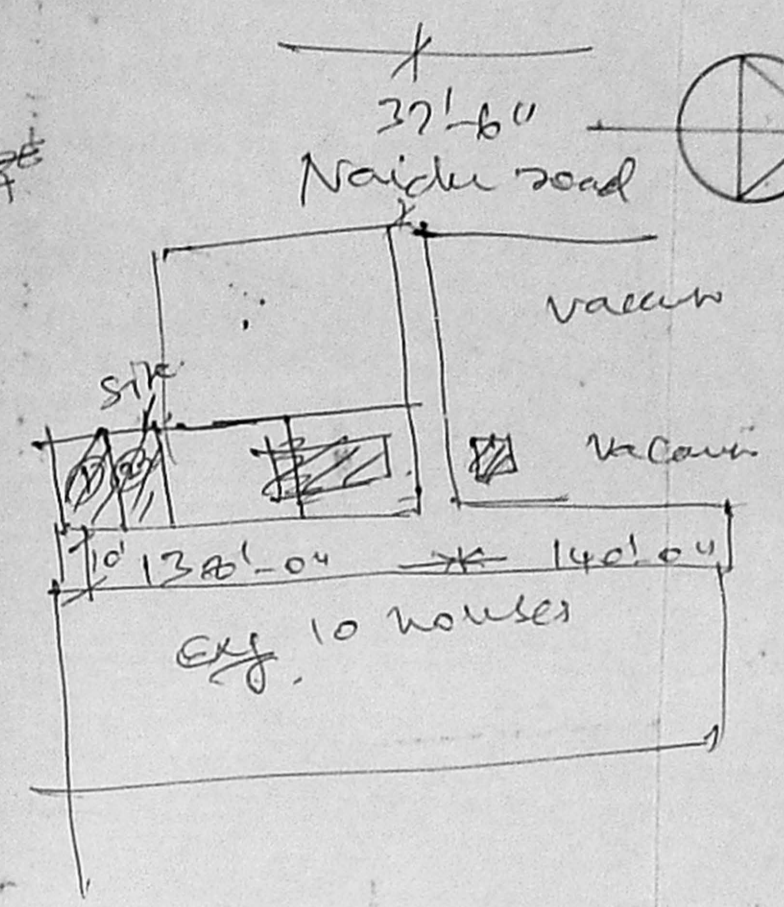 37'-6"
Naidu road
Vacant
Site
Vacant
10' 138'-0" 140'-0"
Exg. 10 houses